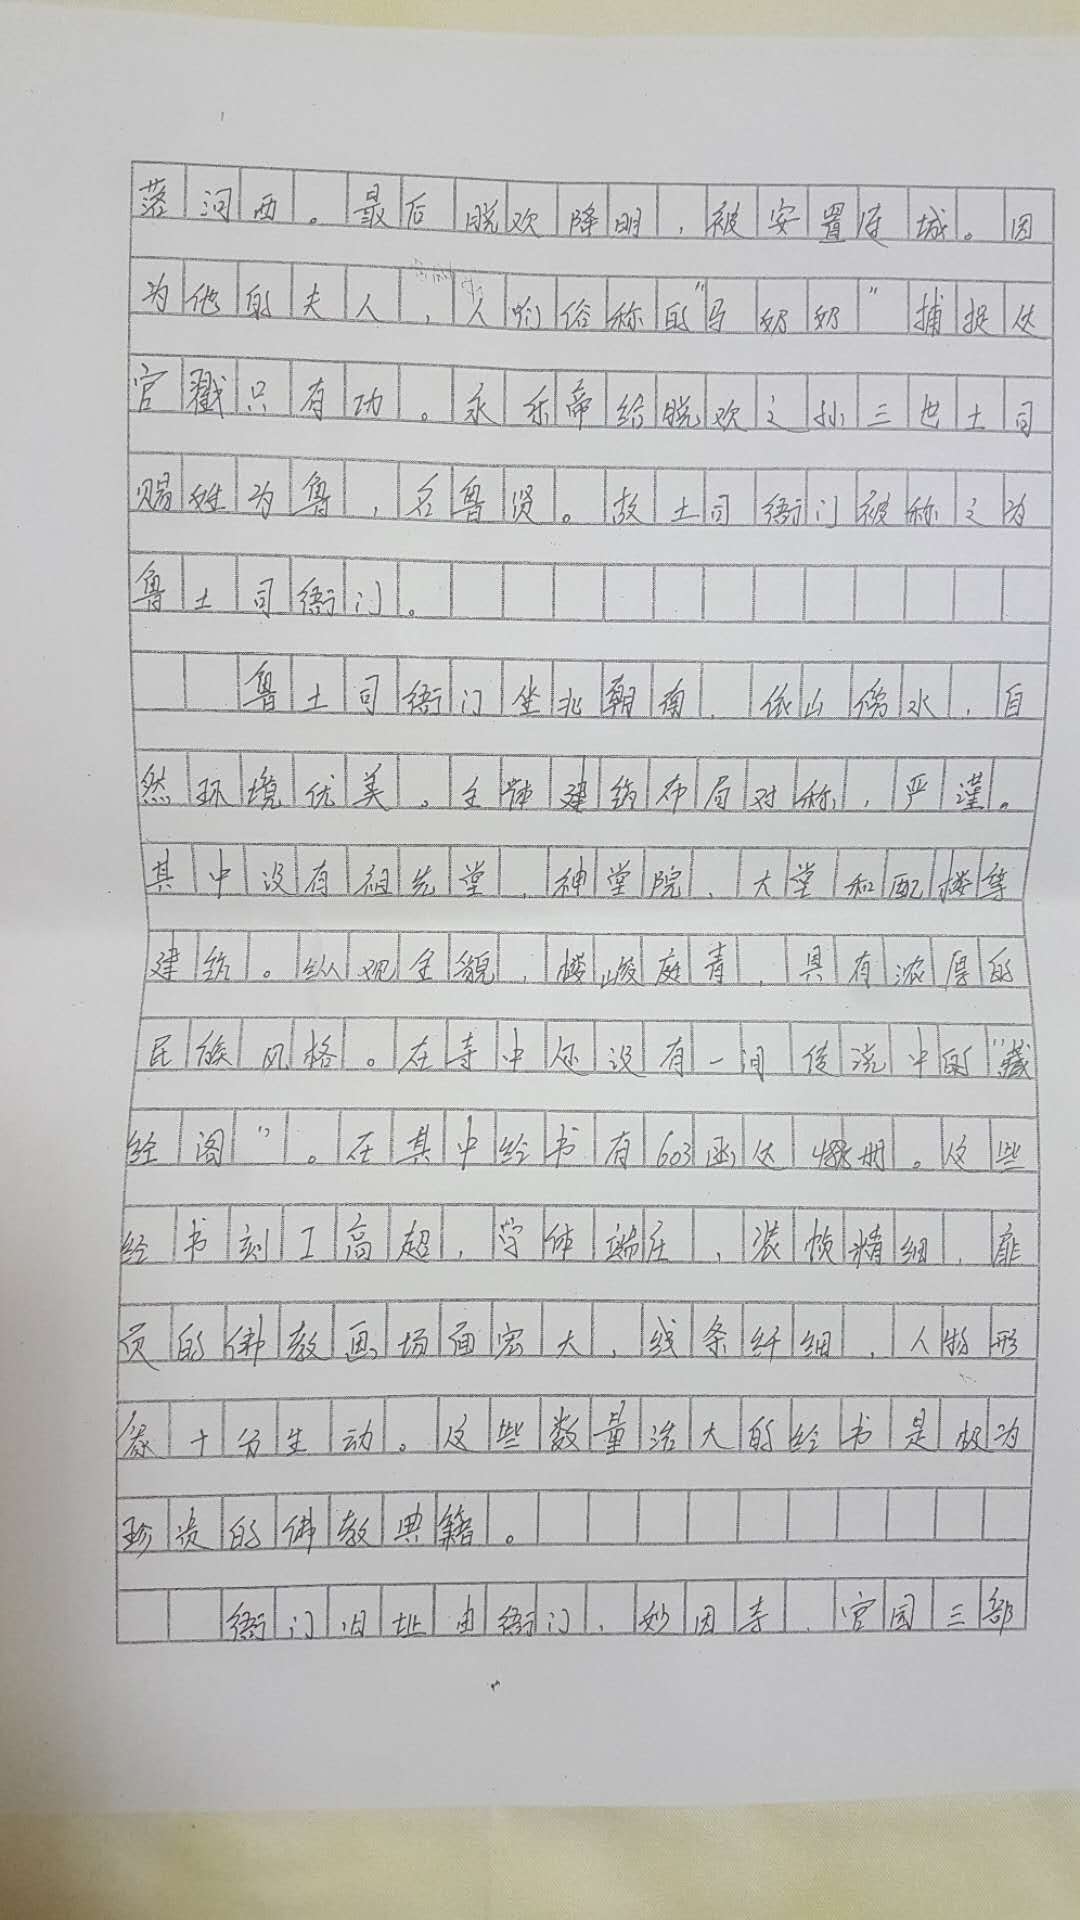 落河西。最后脱欢降明，被安置连城。因
为他的夫人，人们俗称的"马奶奶"捕捉达
官戳只有功。永乐帝给脱欢之孙三世土司
赐姓为鲁，名鲁贤。故土司衙门被称之为
鲁土司衙门。
鲁土司衙门坐北朝南，依山傍水，自
然环境优美。主体建筑布局对称，严谨。
其中设有祖先堂，神堂院，大堂和配楼等
建筑。纵观全貌，楼峻庭青，具有浓厚的
民族风格。在寺中还设有一间传说中的"藏
经阁"。在其中经书有603函达册。这些
经书刻工高超，字体端庄，装帧精细，扉
页的佛教画场面宏大，线条纤细，人物形
象十分生动。这些数量浩大的经书是极为
珍贵的佛教典籍。
衙门旧址由衙门，妙因寺，官园三部